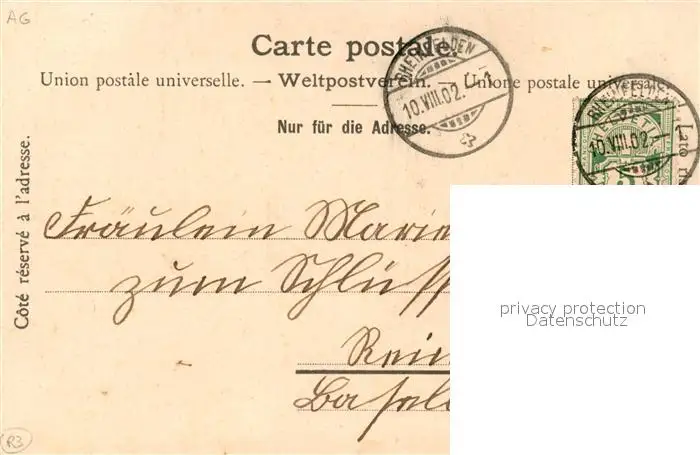 AG
Carte postale.
Union postale universelle. — Weltpostverein. — Unione postale universale
Nur für die Adresse.
Côté réservé à l'adresse.
RHEINFELDEN
10.VIII.02.-1
RHEINFELDEN
10.VIII.02.-
HELVETIA
5
Lato
Fräulein Marie
zum Schlüss
Rein
Basel
privacy protection
Datenschutz
R3